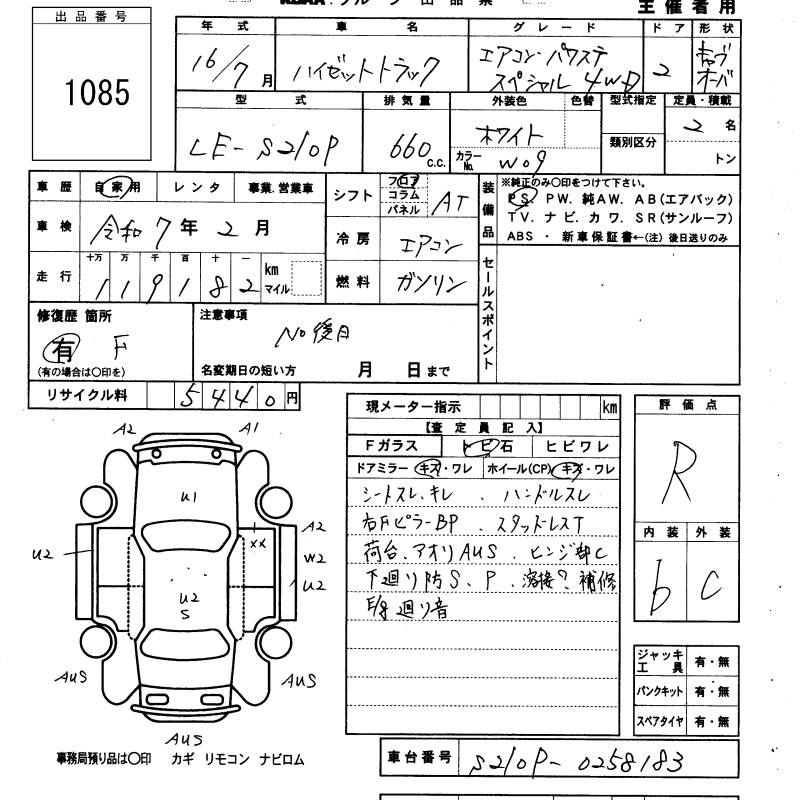 主催者用
出品番号
1085
年式 車名 グレード ドア 形状
16/7月 ハイゼットトラック エアコン・パワステ スペシャル 4WD 2 キャブオーバ
型式 排気量 外装色 色替 型式指定 定員・積載
LE-S210P 660 C.C. ホワイト カラーNo. W09 類別区分 2名 トン
車歴 自家用 レンタ 事業.営業車
車検 令和7年2月
走行 十万 万 千 百 十 一
119182 km マイル
シフト フロア コラム パネル AT
冷房 エアコン
燃料 ガソリン
装備品 ※純正のみ○印をつけて下さい。
PS. PW. 純AW. AB(エアバック)
TV. ナビ. カワ. SR(サンルーフ)
ABS ・ 新車保証書←(注) 後日送りのみ
セールスポイント
修復歴 箇所
有 F
(有の場合は○印を)
注意事項
No後日
名変期日の短い方 月 日まで
リサイクル料 5440円
現メーター指示 km
【査定員記入】
Fガラス トビ石 ヒビワレ
ドアミラー キズ・ワレ ホイール(CP) キズ・ワレ
シートスレ、キレ 、 ハンドルスレ
右Fピラー BP 、 スタッドレスT
荷台、アオリ AUS 、 ヒンジ部C
下廻り防S、P 、溶接?補修
E/g廻り音
評価点
R
内装 外装
b C
ジャッキ工具 有・無
パンクキット 有・無
スペアタイヤ 有・無
A2 A1
U1
A2
U2 XX W2
U2 U2
S
AUS AUS
AUS
事務局預り品は○印 カギ リモコン ナビロム
車台番号 S210P-0258183